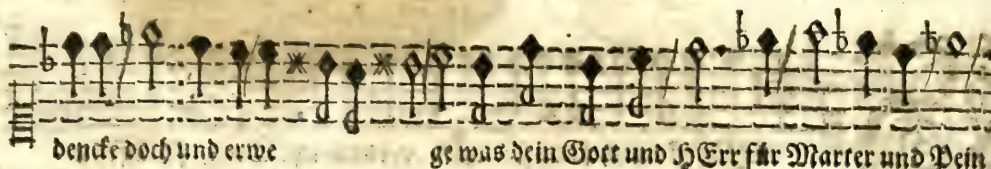 dencke doch und erwe ge was dein Gott und HErr für Marter und Pein